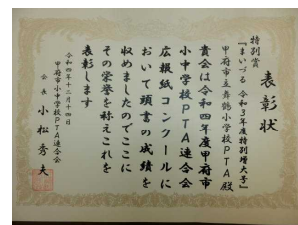 表彰状
特別賞
『まいづる 令和3年度特別増大号』
甲府市立舞鶴小学校PTA 殿
貴会は令和四年度甲府市
小中学校PTA連合会
広報紙コンクールに
おいて頭書の成績を
収めましたのでここに
その栄誉を称えこれを
表彰します
令和四年十二月十四日
甲府市小中学校PTA連合会
会長 小松秀夫